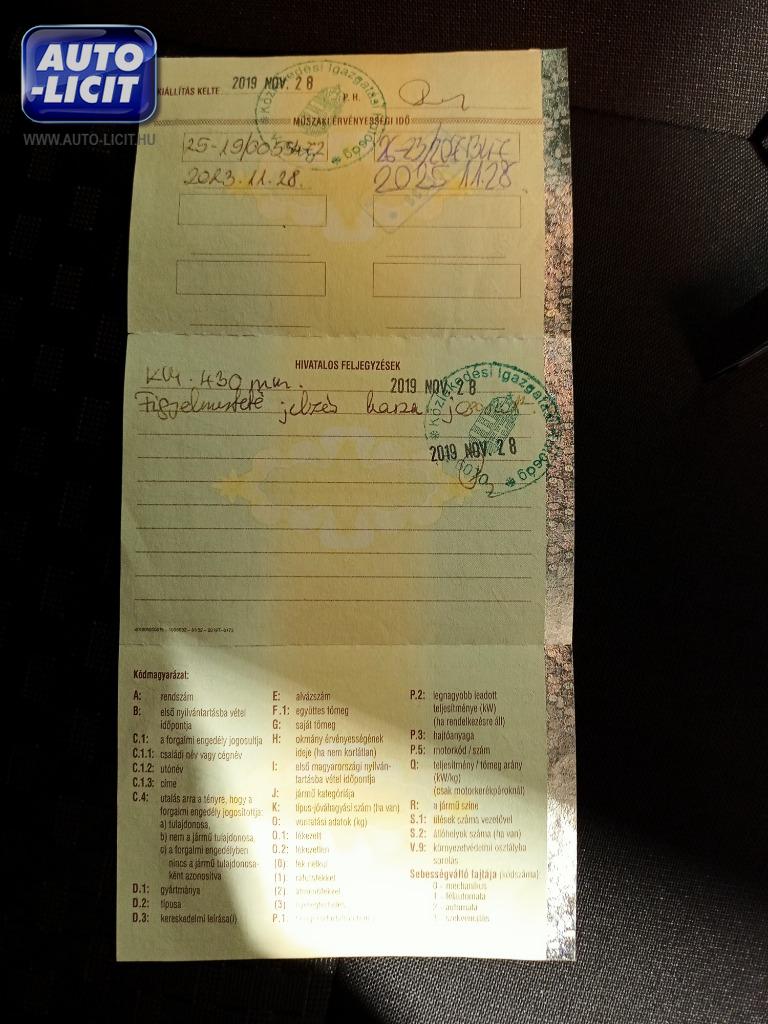 AUTO
-LICIT
WWW.AUTO-LICIT.HU
KIÁLLÍTÁS KELTE 2019 NOV. 28 P.H.
MŰSZAKI ÉRVÉNYESSÉGI IDŐ
2023.11.28. 2025.11.28.
HIVATALOS FELJEGYZÉSEK
430 mm. 2019 NOV. 28
jelzés
2019 NOV. 28
Kódmagyarázat:
A: rendszám
B: első nyilvántartásba vétel
időpontja
C.1: a forgalmi engedély jogosultja
C.1.1: családi név vagy cégnév
C.1.2: utónév
C.1.3: címe
C.4: utalás arra a tényre, hogy a
forgalmi engedély jogosítottja:
a) tulajdonosa,
b) nem a jármű tulajdonosa,
c) a forgalmi engedélyben
nincs a jármű tulajdonosa-
ként azonosítva
D.1: gyártmánya
D.2: típusa
D.3: kereskedelmi leírása(i)
E: alvázszám
F.1: együttes tömeg
G: saját tömeg
H: okmány érvényességének
ideje (ha nem korlátlan)
I: első magyarországi nyilván-
tartásba vétel időpontja
J: jármű kategóriája
K: típus-jóváhagyási szám (ha van)
O: vontatási adatok (kg)
O.1: fékezett
O.2: fékezetlen
(0): fék nélkül
(1): ráfutófékkel
(2):
(3)
P.1:
P.2: legnagyobb leadott
teljesítménye (kW)
(ha rendelkezésre áll)
P.3: hajtóanyaga
P.5: motorkód / szám
Q: teljesítmény / tömeg arány
(kW/kg)
(csak motorkerékpároknál)
R: a jármű színe
S.1: ülések száma vezetővel
S.2: állóhelyek száma (ha van)
V.9: környezetvédelmi osztályba
sorolás
Sebességváltó fajtája (kódszáma)
0 - mechanikus
1 - félautomata
2 - automata
3 - szekvenciális